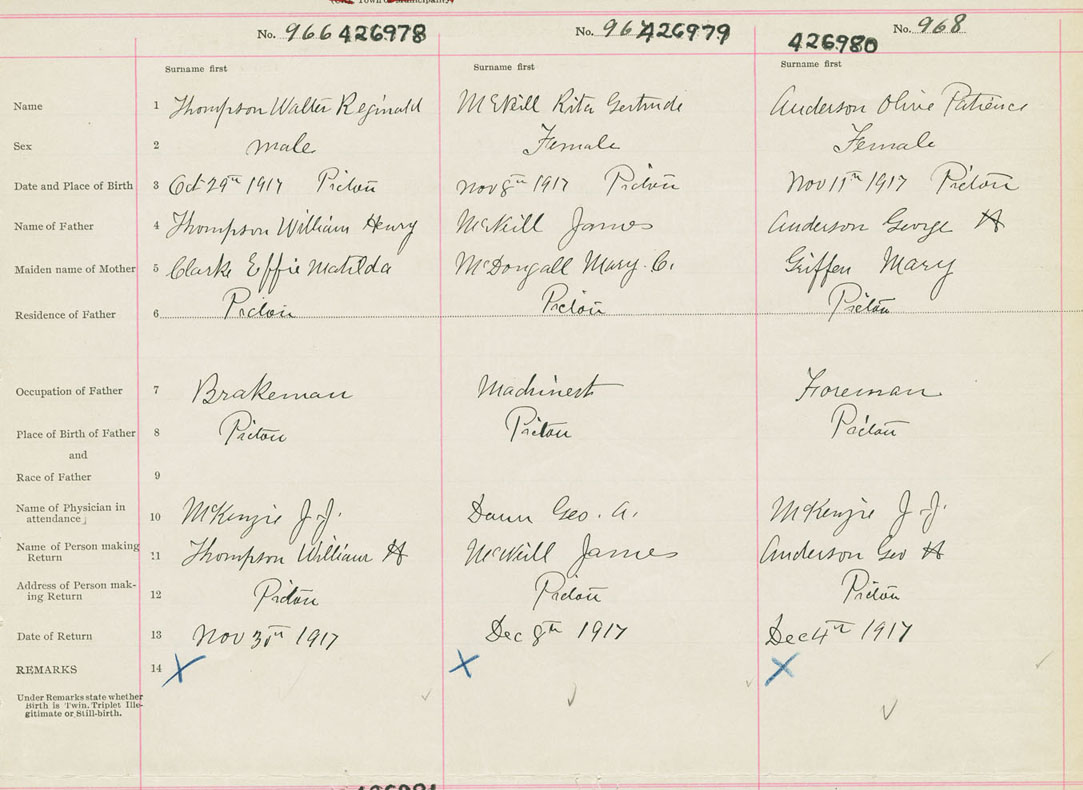 No. 966 426978 No. 967 426979 No. 968
426980
Surname first Surname first Surname first
Name 1 Thompson Walter Reginald McNeill Rita Gertrude Anderson Olive Patience
Sex 2 Male Female Female
Date and Place of Birth 3 Oct 29th 1917 Pictou Nov 8th 1917 Pictou Nov 11th 1917 Pictou
Name of Father 4 Thompson William Henry McNeill James Anderson George H
Maiden name of Mother 5 Clarke Effie Matilda McDougall Mary C. Griffen Mary
Residence of Father 6 Pictou Pictou Pictou
Occupation of Father 7 Brakeman Machinest Foreman
Place of Birth of Father 8 Pictou Pictou Pictou
and
Race of Father 9
Name of Physician in
attendance 10 McKenzie J. J. Geo. A. McKenzie J. J.
Name of Person making
Return 11 Thompson William H McNeill James Anderson Geo H
Address of Person mak-
ing Return 12 Pictou Pictou Pictou
Date of Return 13 Nov 30th 1917 Dec 8th 1917 Dec 4th 1917
REMARKS 14 X X X
Under Remarks state whether
Birth is Twin, Triplet Ille-
gitimate or Still-birth.